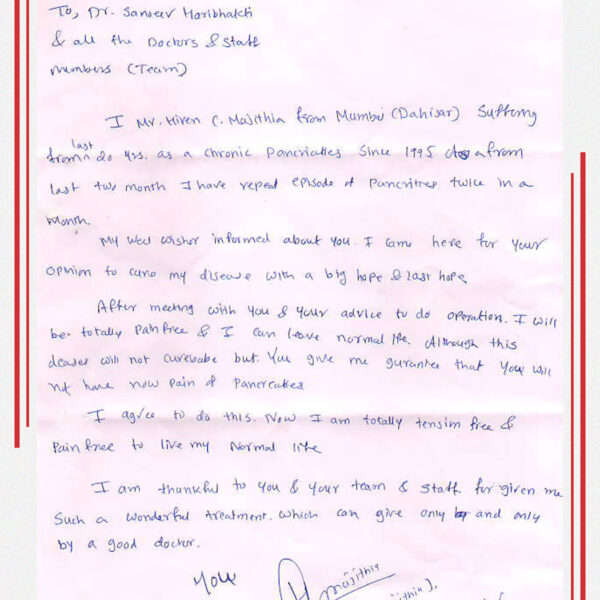 To, Dr. Sanjeev Haribhakti
& all the Doctors & Staff
members (Team)
I Mr. Hiren C. Majithia from Mumbai (Dahisar) Suffering
last
from 20 yrs. as a chronic Pancriaties Since 1995 & from
last two month I have repeat episode of Pancrities twice in a
month
My well wisher informed about you. I came here for your
opinion to care my disease with a big hope & last hope
After meeting with you & your advice to do operation. I will
be totally pain free & I can leave normal life. Although this
deases will not curebabe but you give me gurantee that you will
not have now pain of pancreaties
I agree to do this. Now I am totally tension free &
Pain free to live my Normal life
I am thankful to you & your team & staff for given me
Such a wonderful treatment. which can give only and only
by a good doctor.
Majithia